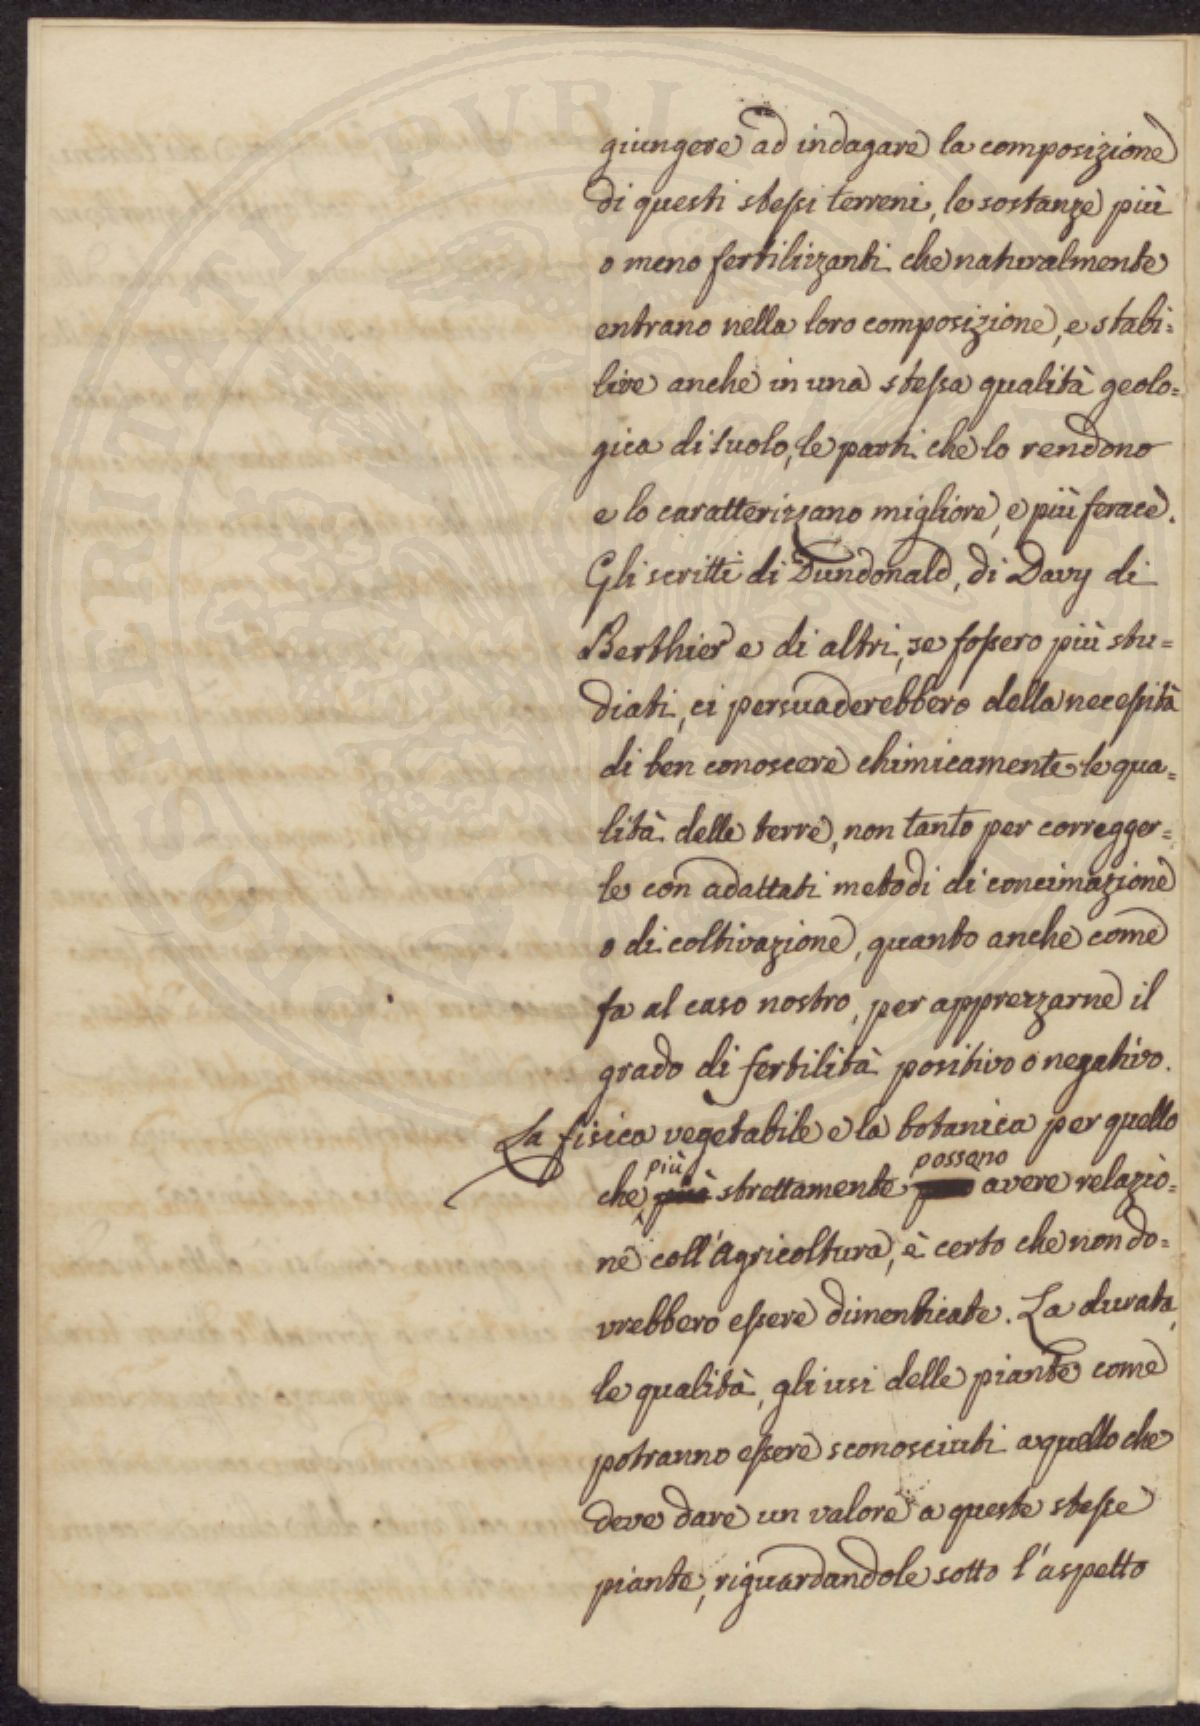 giungere ad indagare la composizione
di questi stessi terreni, le sostanze più
o meno fertilizzanti che naturalmente
entrano nella loro composizione, e stabi=
lire anche in una stessa qualità geolo=
gica di suolo, le parti che lo rendono
e lo caratterizzano migliore, e più ferace.
Gli scritti di Dundonald, di Davy di
Berthier e di altri, se fossero più stu=
diati, ci persuaderebbero della necessità
di ben conoscere chimicamente le qua=
lità delle terre, non tanto per corregger=
le con adattati metodi di concimazione
o di coltivazione, quanto anche come
fa al caso nostro, per apprezzarne il
grado di fertilità positivo o negativo.
La fisica vegetabile e la botanica per quello
più possano
che più strettamente avere relazio=
ne coll'Agricoltura, è certo che non do=
vrebbero essere dimenticate. La durata,
le qualità, gli usi delle piante come
potranno essere sconosciuti a quello che
deve dare un valore a queste stesse
piante, riguardandole sotto l'aspetto